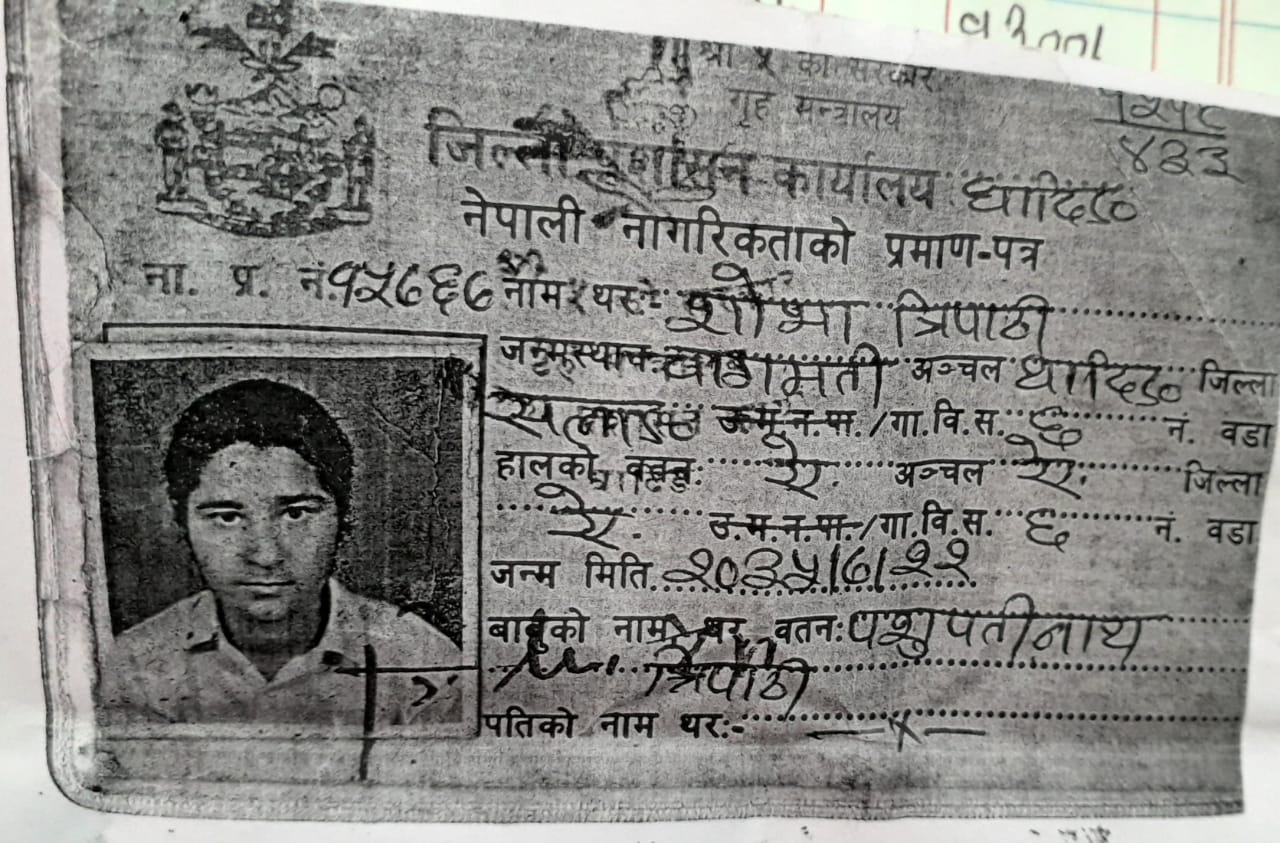 व
श्री ५ को सरकार
गृह मन्त्रालय
४३३
जिल्ला प्रशासन कार्यालय धादिङ
नेपाली नागरिकताको प्रमाण-पत्र
ना. प्र. नं. १५७६७ नाम थर:- शोभा त्रिपाठी
जन्मस्थान: बागमती अञ्चल धादिङ जिल्ला
उ.म.न.पा./गा.वि.स. ६ नं. वडा
हालको वतन: ऐ. अञ्चल ऐ. जिल्ला
ऐ. उ.म.न.पा./गा.वि.स. ६ नं. वडा
जन्म मिति २०३५।७।२२
बाबुको नाम थर वतन: पशुपतीनाथ
त्रिपाठी
पतिको नाम थर:- —x—